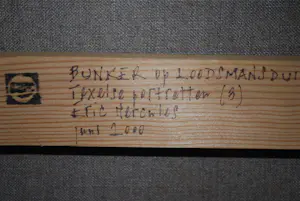 BUNKER op LOODSMANSDUI
Texelse portretten (8)
Eric Hercules
juni 2000